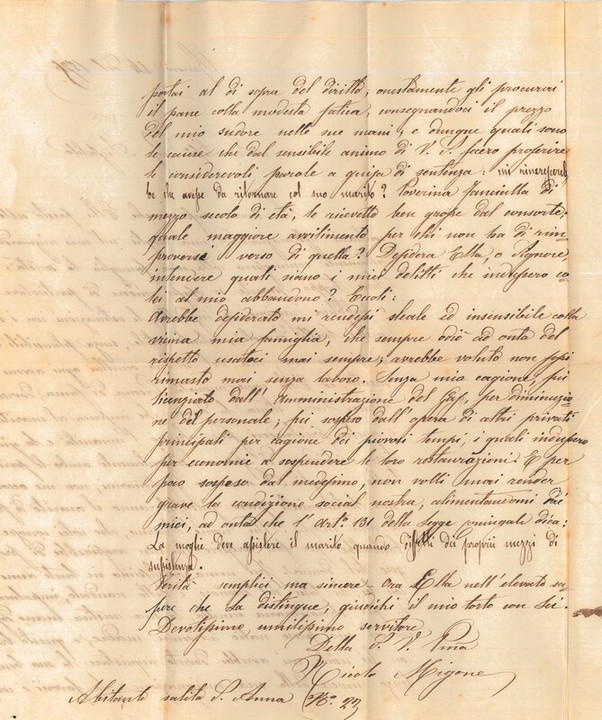 portai al di sopra del diritto, onestamente gli procurai
il pane colla modesta fatica, consegnandoci il prezzo
del mio sudore nelle sue mani, e dunque quali sono
le cause che dal sensibile animo di V. S. fecero proferire
le considerevoli parole a guisa di sentenza: mi rincrescereb
be che avesse da ritornare col suo marito? Poverina fanciulla di
mezzo secolo di età, le ricevette ben grosse dal consorte;
quale maggiore avvilimento per chi non ha di rim
proversi verso di quella? Desidera Ella, o Signore,
intendere quali siano i miei delitti che indussero co
lei al mio abbandono? Eccoli:
Avrebbe desiderato mi rendessi sleale ed insensibile colla
vicina mia famiglia, che sempre odiò ad onta del
rispetto usatoci mai sempre; avrebbe voluto non fossi
rimasto mai senza lavoro. Senza mia cagione, fui
licenziato dall'Amministrazione del Gas, per diminuzio
ne del personale; fui sospeso dall'opera di altri privati
principali per cagione dei piovosi tempi, i quali indussero
per economie a sospendere le loro restaurazioni. E per
poco sospeso dal medesimo, non volli mai render
grave la condizione social nostra, alimentandomi dai
miei, ad onta che l'Art.º 131 della Legge coniugale dica:
La moglie deve assistere il marito quando difetti dei proprii mezzi di
sussistenza.
Verità semplici ma sincere. Ora Ella nell'elevato sa
pere che La distingue, giudichi il mio torto con Lei.
Devotissimo umilissimo servitore
Della S. V. Ill.ma
Nicolo Migone
Abitante salita S. Anna N.º 23